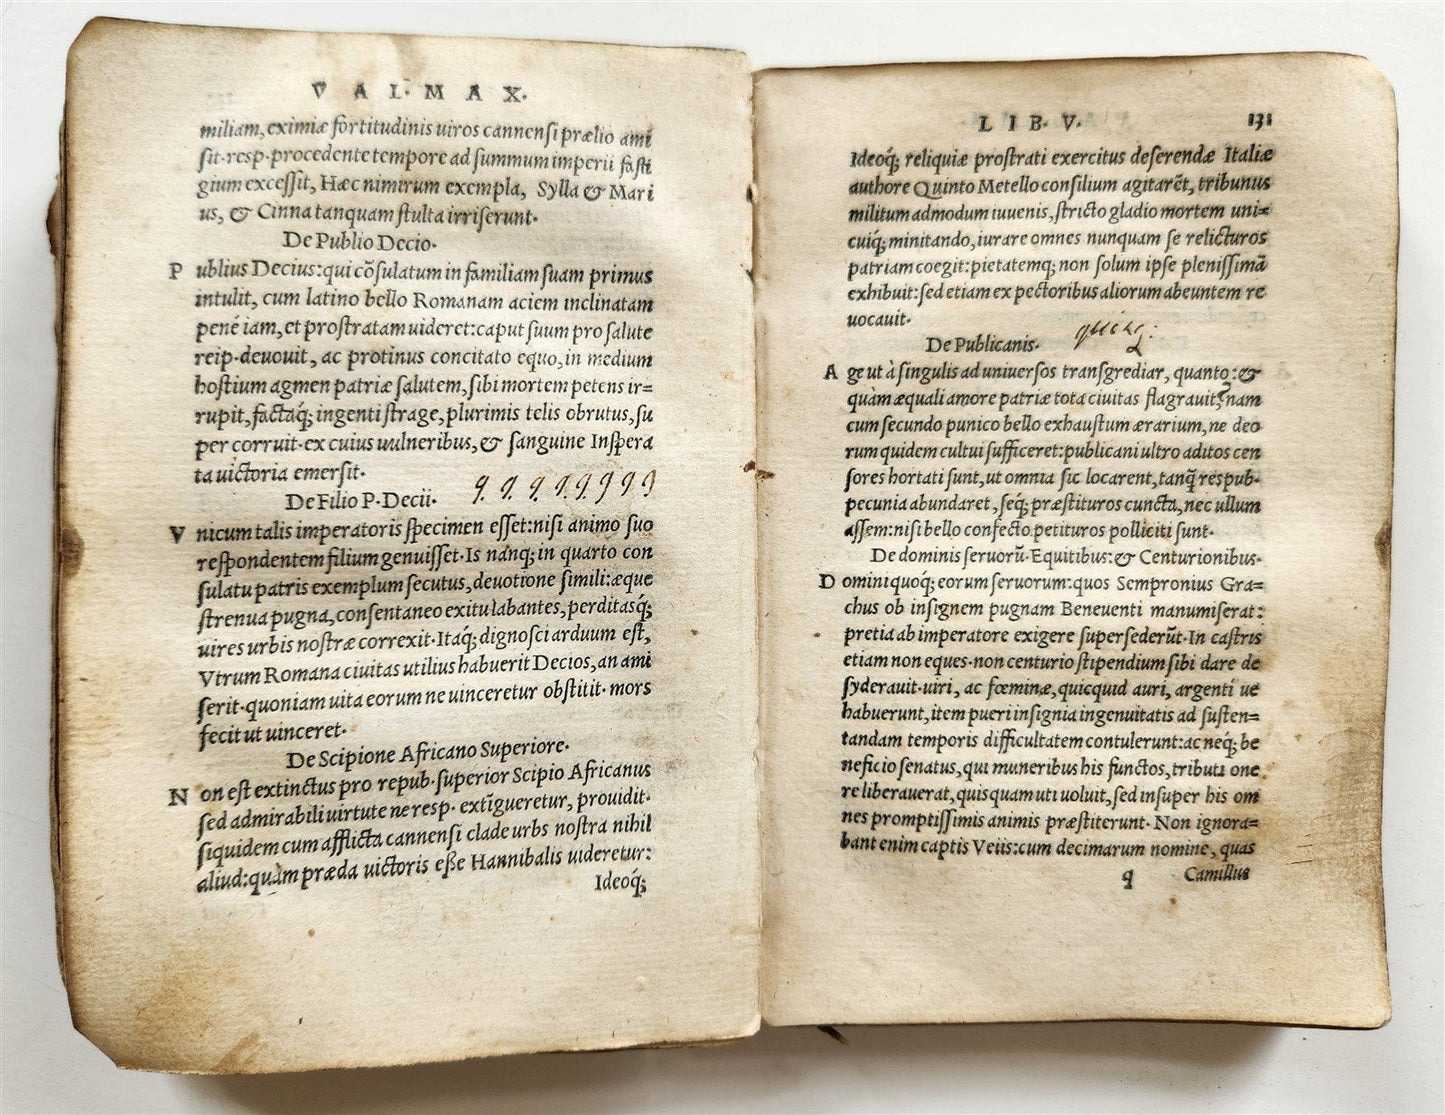 VAL. MAX.
miliam, eximiæ fortitudinis uiros cannensi prælio ami
sit. resp. procedente tempore ad summum imperii fasti
gium excessit, Hæc nimirum exempla, Sylla & Mari
us, & Cinna tanquam stulta irriserunt.
De Publio Decio.
Publius Decius: qui cõsulatum in familiam suam primus
intulit, cum latino bello Romanam aciem inclinatam
pene iam, et prostratam uideret: caput suum pro salute
reip. deuouit, ac protinus concitato equo, in medium
hostium agmen patriæ salutem, sibi mortem petens ir=
rupit, factaq; ingenti strage, plurimis telis obrutus, su
per corruit. ex cuius uulneribus, & sanguine Inspera
ta uictoria emersit.
De Filio P. Decii. q. q. q q. q. q q q
Vnicum talis imperatoris specimen esset: nisi animo suo
respondentem filium genuisset. Is nanq; in quarto con
sulatu patris exemplum secutus, deuotione simili: æque
strenua pugna, consentaneo exitu labantes, perditasq;
uires urbis nostræ correxit. Itaq; dignosci arduum est,
Vtrum Romana ciuitas utilius habuerit Decios, an ami
serit. quoniam uita eorum ne uinceretur obstitit. mors
fecit ut uinceret.
De Scipione Africano Superiore.
Non est extinctus pro repub. superior Scipio Africanus
sed admirabili uirtute ne resp. extĩgueretur, prouidit.
siquidem cum afflicta cannensi clade urbs nostra nihil
aliud: quàm præda uictoris eße Hannibalis uideretur:
Ideoq;
LIB. V. 131
Ideoq; reliquiæ prostrati exercitus deserendæ Italiæ
authore Quinto Metello consilium agitarẽt, tribunus
militum admodum iuuenis, stricto gladio mortem uni=
cuiq; minitando, iurare omnes nunquam se relicturos
patriam coegit: pietatemq; non solum ipse plenissimã
exhibuit: sed etiam ex pectoribus aliorum abeuntem re
uocauit.
De Publicanis.
Age ut à singulis ad uniuersos transgrediar, quanto: &
quàm æquali amore patriæ tota ciuitas flagrauit? nam
cum secundo punico bello exhaustum ærarium, ne deo
rum quidem cultui sufficeret: publicani ultro aditos cen
sores hortati sunt, ut omnia sic locarent, tanq̃ respub.
pecunia abundaret, seq; præstituros cuncta, nec ullum
assem: nisi bello confecto petituros polliciti sunt.
De dominis seruorũ. Equitibus: & Centurionibus.
Domini quoq; eorum seruorum: quos Sempronius Gra=
chus ob insignem pugnam Beneuenti manumiserat:
pretia ab imperatore exigere supersederũt. In castris
etiam non eques. non centurio stipendium sibi dare de
syderauit. uiri, ac fœminæ, quicquid auri, argenti ue
habuerunt, item pueri insignia ingenuitatis ad susten=
tandam temporis difficultatem contulerunt: ac neq; be
neficio senatus, qui muneribus his functos, tributi one
re liberauerat, quisquam uti uoluit, sed insuper his om
nes promptissimis animis præstiterunt. Non ignora=
bant enim captis Veiis: cum decimarum nomine, quas
q Camillus